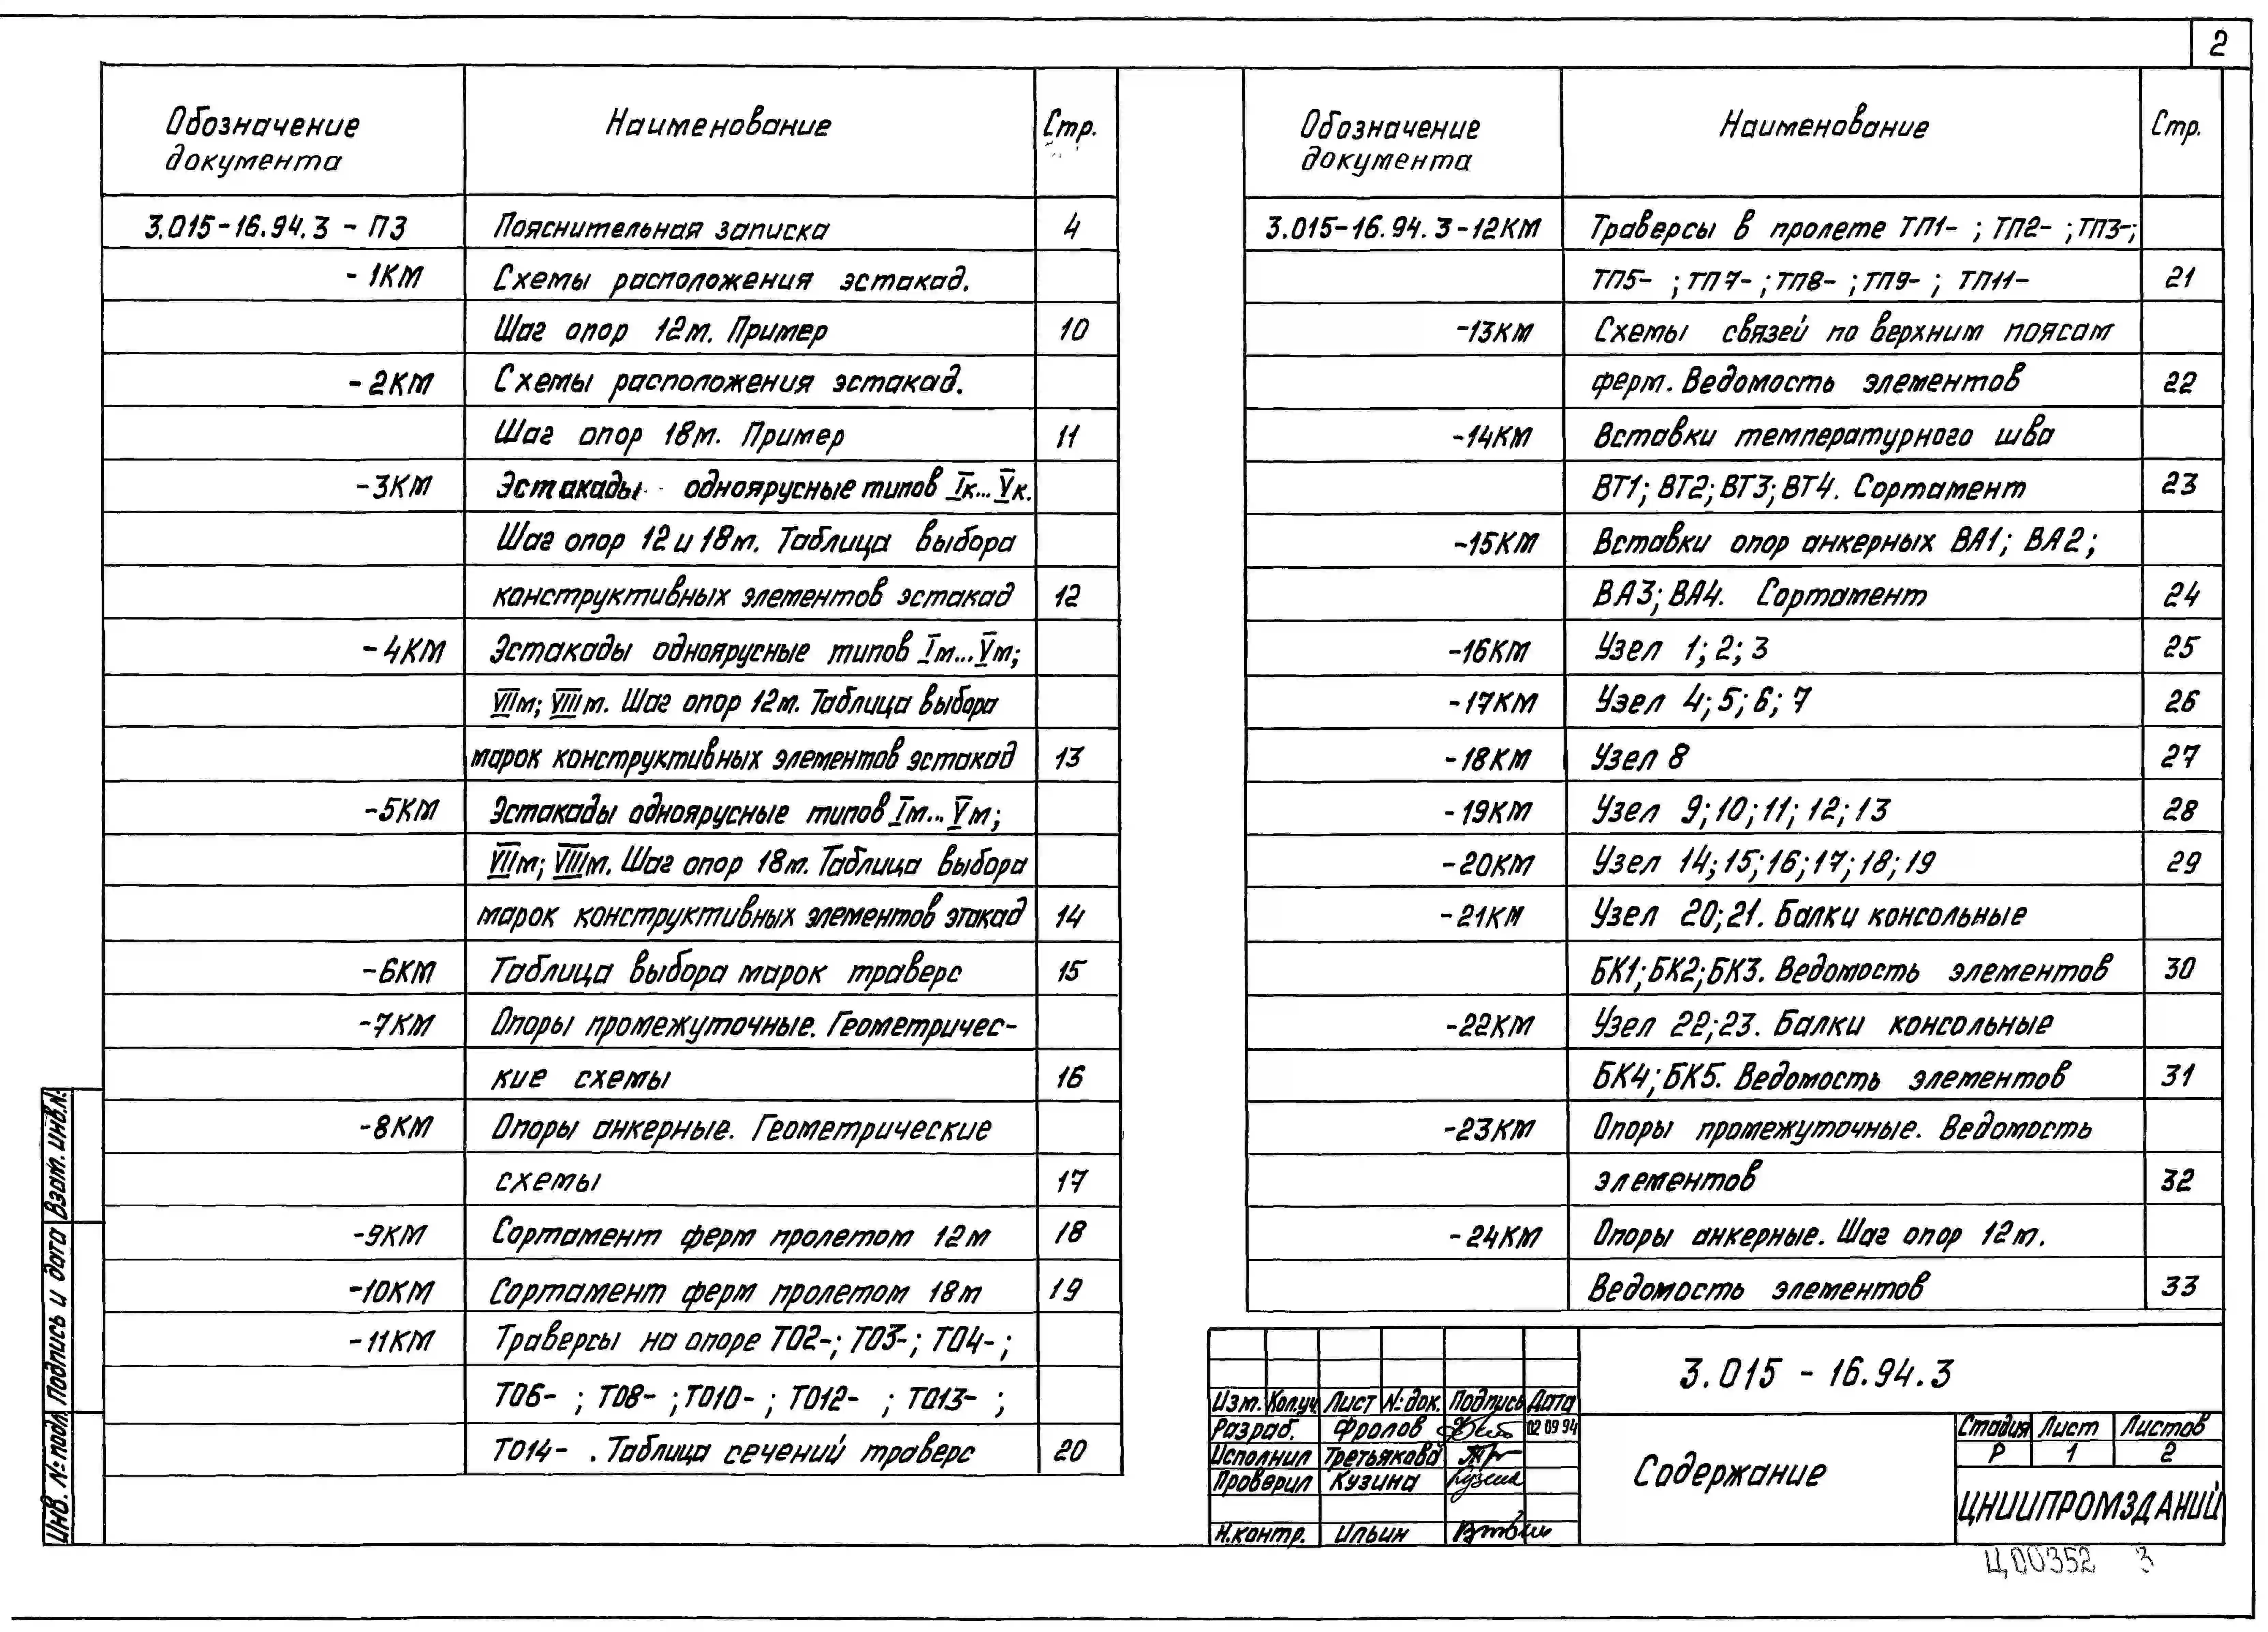 2
Обозначение документа Наименование Стр.
3.015-16.94.3 - ПЗ Пояснительная записка 4
- 1КМ Схемы расположения эстакад.
Шаг опор 12м. Пример 10
- 2КМ Схемы расположения эстакад.
Шаг опор 18м. Пример 11
-3КМ Эстакады одноярусные типов Iк...Vк.
Шаг опор 12 и 18м. Таблица выбора
конструктивных элементов эстакад 12
-4КМ Эстакады одноярусные типов Iм...Vм;
VIIм; VIIIм. Шаг опор 12м. Таблица выбора
марок конструктивных элементов эстакад 13
-5КМ Эстакады одноярусные типов Iм...Vм;
VIIм; VIIIм. Шаг опор 18м. Таблица выбора
марок конструктивных элементов этакад 14
-6КМ Таблица выбора марок траверс 15
-7КМ Опоры промежуточные. Геометричес-
кие схемы 16
-8КМ Опоры анкерные. Геометрические
схемы 17
-9КМ Сортамент ферм пролетом 12м 18
-10КМ Сортамент ферм пролетом 18м 19
-11КМ Траверсы на опоре ТО2-; ТО3-; ТО4-;
ТО6- ; ТО8- ; ТО10- ; ТО12- ; ТО13- ;
ТО14- . Таблица сечений траверс 20
Обозначение документа Наименование Стр.
3.015-16.94.3-12КМ Траверсы в пролете ТП1- ; ТП2- ; ТП3-;
ТП5- ; ТП7- ; ТП8- ; ТП9- ; ТП11- 21
-13КМ Схемы связей по верхним поясам
ферм. Ведомость элементов 22
-14КМ Вставки температурного шва
ВТ1; ВТ2; ВТ3; ВТ4. Сортамент 23
-15КМ Вставки опор анкерных ВА1; ВА2;
ВА3; ВА4. Сортамент 24
-16КМ Узел 1; 2; 3 25
-17КМ Узел 4; 5; 6; 7 26
-18КМ Узел 8 27
-19КМ Узел 9; 10; 11; 12; 13 28
-20КМ Узел 14; 15; 16; 17; 18; 19 29
-21КМ Узел 20; 21. Балки консольные
БК1; БК2; БК3. Ведомость элементов 30
-22КМ Узел 22; 23. Балки консольные
БК4; БК5. Ведомость элементов 31
-23КМ Опоры промежуточные. Ведомость
элементов 32
-24КМ Опоры анкерные. Шаг опор 12м.
Ведомость элементов 33
3.015 - 16.94.3
Изм. Кол.уч. Лист №док. Подпись Дата
Разраб. Фролов 02 09 94
Исполнил Третьякова
Проверил Кузина Кузина
Н.контр. Ильин
Содержание
Стадия Лист Листов
Р 1 2
ЦНИИПРОМЗДАНИЙ
Ц00352 3
Взам. инв.№
Подпись и дата
Инв. № подл.